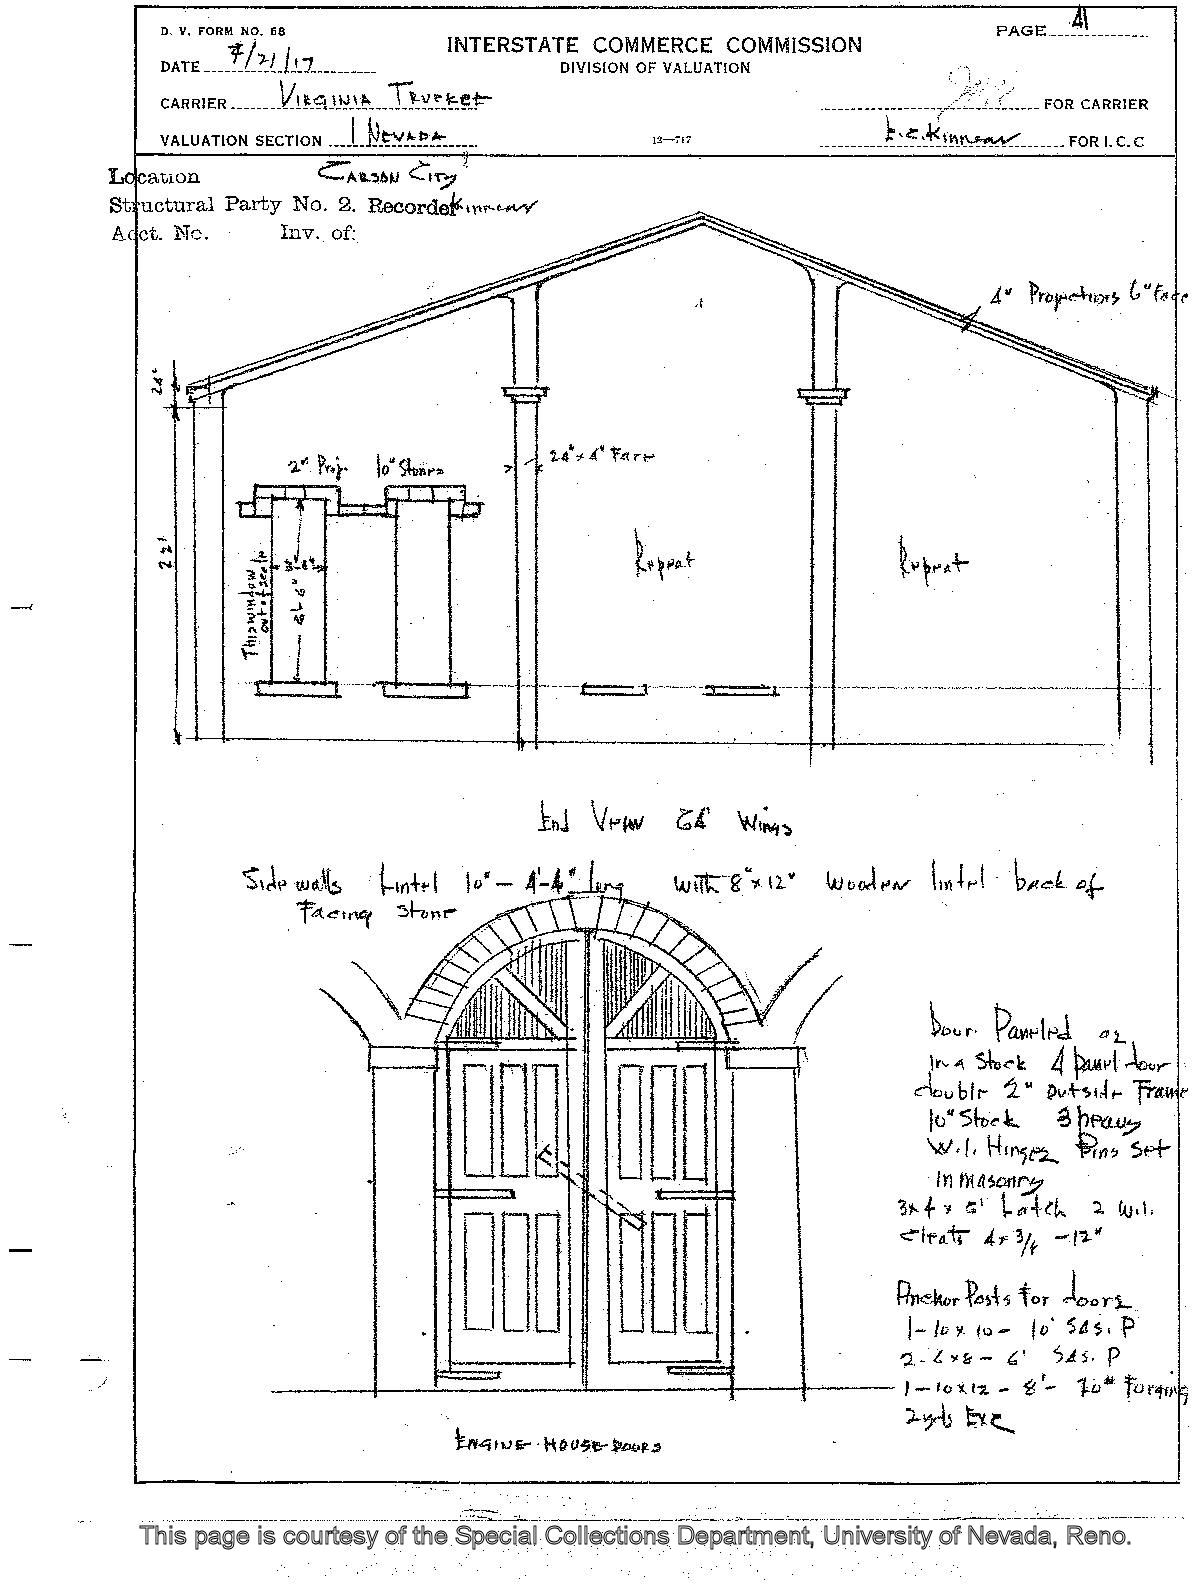 D. V. FORM NO. 68
PAGE 41
INTERSTATE COMMERCE COMMISSION
DIVISION OF VALUATION
DATE 7/21/17
CARRIER VIRGINIA TRUCKEE
FOR CARRIER
VALUATION SECTION 1 NEVADA
13—717
E.C. Kinnear FOR I.C.C
Location CARSON CITY
Structural Party No. 2. Recorder Kinnear
Acct. No. Inv. of:
4" Projections 6" Face
24"
2" Proj. 10" Stones
24" x 4" Face
22'
This window out of scale
3'-6"
Repeat
Repeat
End View 64' Wings
Side walls Lintel 10" - 4'-4" long with 8" x 12" Wooden lintel back of
Facing stone
Door Paneled as
in a Stock 4 panel door
double 2" outside Frame
10" Stock 3 heavy
W.I. Hinges Pins set
in masonry
3 x 4 x 5' Latch 2 W.I.
cleats 4 x 3/4 - 12"
Anchor Posts for doors
1 - 10 x 10 - 10' S4S. P
2 - 6 x 8 - 6' S4S. P
1 - 10 x 12 - 8' - 70# Forging
2 yds Exc
ENGINE HOUSE DOORS
This page is courtesy of the Special Collections Department, University of Nevada, Reno.